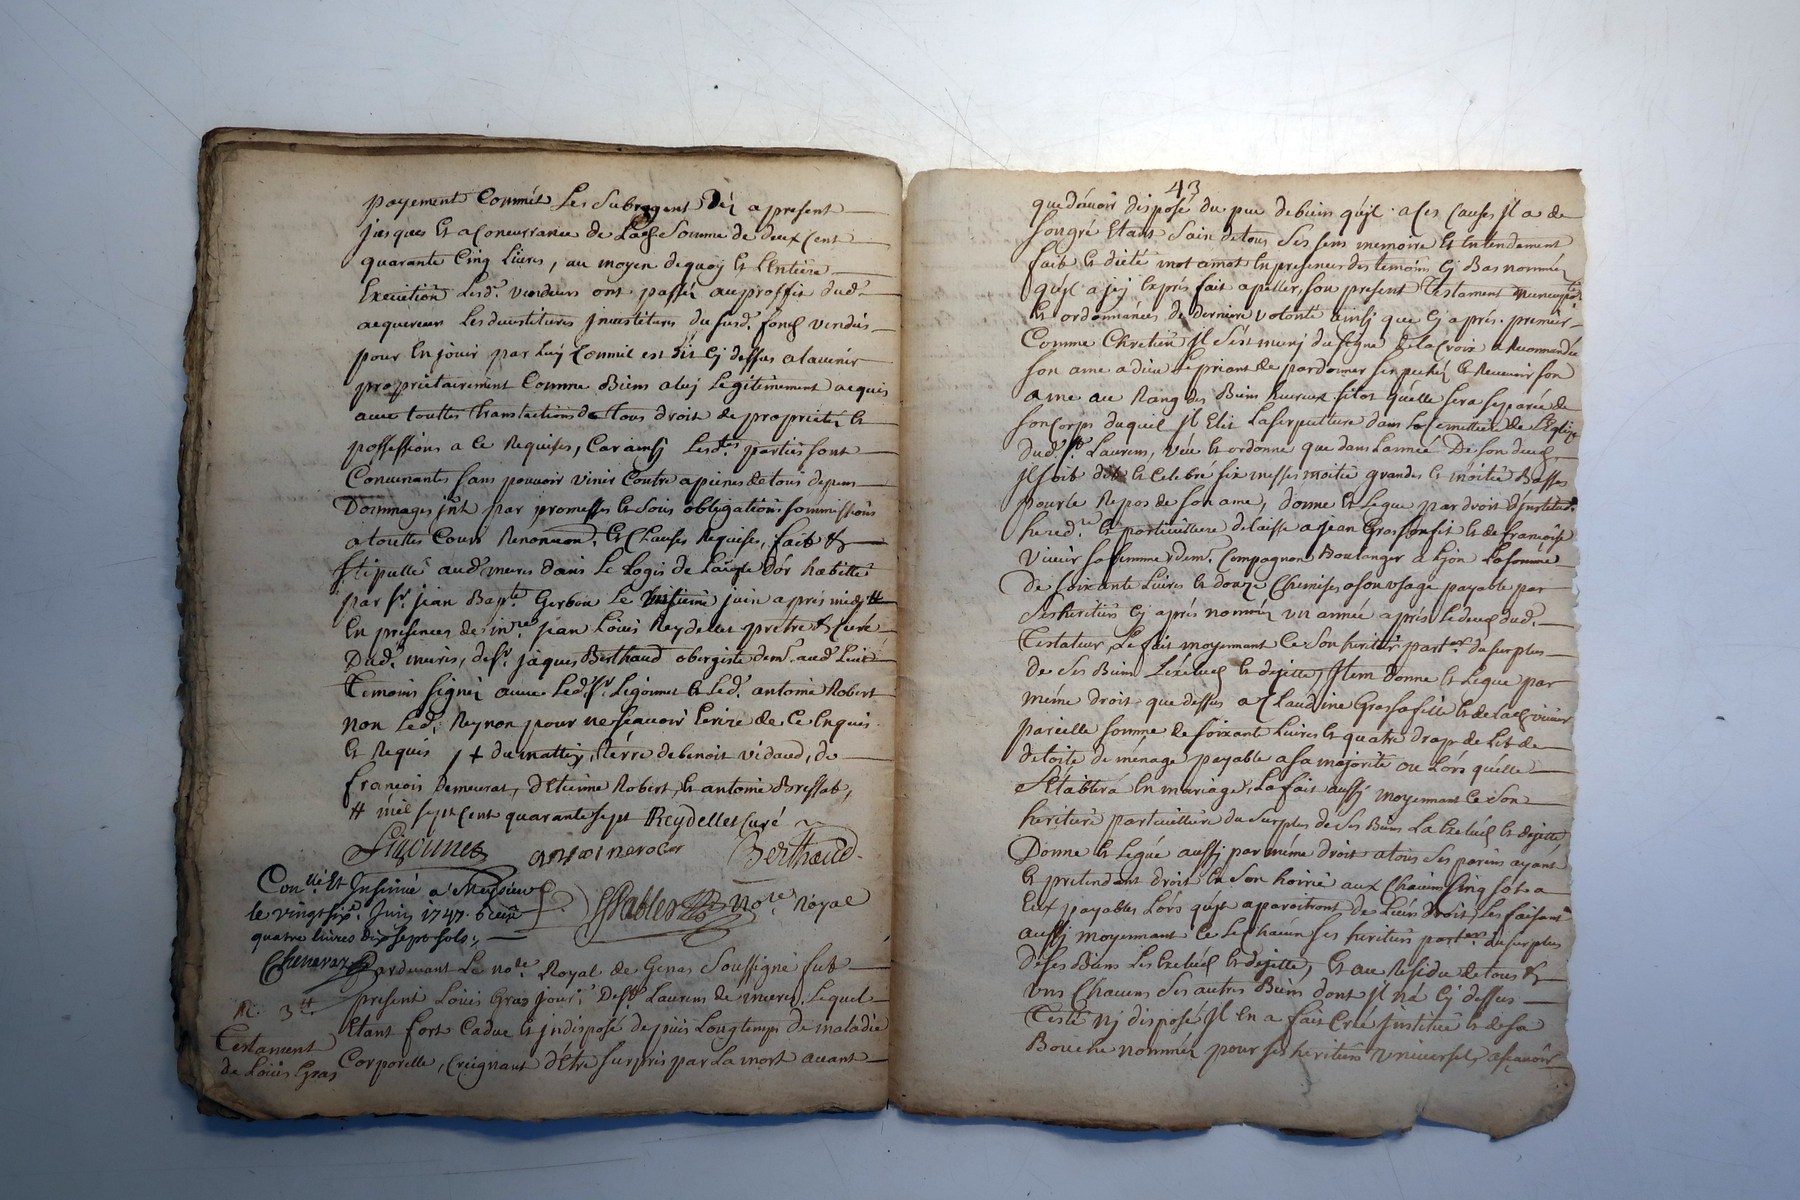 payement Commét Les Subrogent Déz apresent
jusques Et aConcurrance de Lad. Somme de deux Cent
quarante Cinq Livres, au moyen dequoy Et Lentière
Execution Lesd. vendeurs ont passéz auproffit dud.
acquereur Les devestitures jnvestitures du susd. fond vendus
pour Enjouir par Luy Commil est dit Cy dessus alavenir
proprietairement Comme Biens aluy Legitimement acquis
avec touttes translactions de tous droit de proprietéz Et
possessions a Ce Requises, Carainsy Lesd. parties sont
Convenantes sans pouvoir venir Contre apeines detous depens
Dommages jnt par promesses Et Sous obligations sommissions
atouttes Cours Renoncon. Et Clauses Requises, fait &
stipullé aud. meres dans Le Logis de Laigle Dor habitté
par Sr. jean Bapte. Gerbou Le juin aprés midy #
En presences de mre. jean Loüis Reydellet pretre & Curé
Dud. mures, de Sr. jaques Berthaud obergiste demt. aud. Lieu
Temoins signéz avec Led. Sr. Ligonnet Et Led. antoine Robert
non Led. Reynon pour ne scavoir Ecrire de Ce Enquis
Et Requis / + dumattin, térre debenoit vidaud, de
francois Demeurat, detienne Robert, Et antoine Bressat,
# mil sept Cent quarante sept Reydellet Curé
Ligonnet Berthaud
Conllé Et Insinué a Meyzieu
le vingt six. Juin 1747. Reçu
quatre livres dix sept sols
not.re Royal
Chenavaz
Pardevant Le nore. Royal de Genas Soussigné fut
R. 3 tt
present Loüis Gras jour. De St. Laurens de meres, Lequel
Etant fort Caduc Et jndisposé depuis Longtemps de maladie
Testament
de Loüis Gras
Corporelle, Creignant d'Etre surpris par La mort avant
43
que d'avoir disposé du peu debiens qu'jl a Ces Causes jl a de
son gré Etant Sain detous Ses sens memoire Et Entendement
fait Et dicté mot amot En presences des temoins Cy Bas nomméz
qu'jl a jcy Exprés fait apeller, son present Testament nuncupatif
Et ordonnances de Derniere volonté ainsy que Cy aprés. premier
Comme Chretien jl s'est muny du signe dela Croix a Recommandée
son ame adieu Le priant de pardonner ses pechéz Et Recevoir son
ame au Rang des Biens heureux sitot quélle sera separée de
son Corps duquel jl Elit La sepulture dans Le Cemettiere de L'Eglise
dud. St. Laurens, veu Et ordonne que dans Lannée De son deces
jl soit dit Et Celebré six messes moitié grandes Et moitié Basses
pour Le Repos de son ame, donne Et Legue par droit d'jnstituon
hered.re Et particulliere delaisse a jean Gras son fils Et de francoise
Vivier sa femme demt. Compagnon Boulanger a Lyon La somme
De soixante Livres Et douze Chemises a son usage payable par
Ses heritiers Cy aprés nomméz un année aprés Le deces dud.
Testateur, Le fait moyennant Ce Son heritier part.er du surplus
de Ses Biens L'éxclud Et dejette, jtem donne Et Legue par
méme droit que dessus a Claudine Gras sa fille Et de Lad. vivier
pareille somme de soixante Livres Et quatre drap de Lit de
de toile de ménage payable a sa majorité ou Lors quélle
S'établira En mariage, La fait aussy moyennant Ce Son
heritiere particulliere du surplus de Ses Biens La Exclud Et dejette
Donne Et Legué aussy par méme droit atous Ses parens ayant
Et pretendant droit En Son hoirie aux Chacuns Cinq Sols a
Eux payables Lors qu'jls aparoitront de Leurs droit, Les faisant
aussy moyennant Ce Le Chacun Ses heritiers part.ers du surplus
de Ses Biens Les Exclud Et dejette, Et au Residu de tous &
uns Chacuns Ses autres Biens dont jl na Cy dessus
Testé ny disposé jl En a fait Créé jnstitué Et de sa
Bouche nomméz pour ses heritiers universels, ascavoir